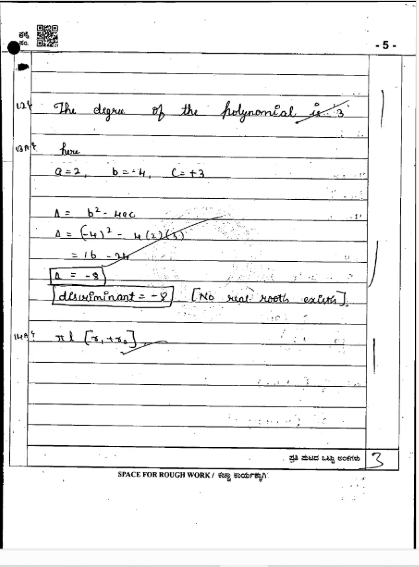 ಕ್ರ.
ಸಂ.
- 5 -
12 Ans The degree of the polynomial is 3
13 Ans here
a=2, b=-4, c=+3
Δ = b² - 4ac
Δ = (-4)² - 4(2)(3)
= 16 - 24
Δ = -8
discriminant = -8 [No real rooth exists].
14 Ans πl [r₁+r₂]
ಪ್ರತಿ ಪುಟದ ಒಟ್ಟು ಅಂಕಗಳು 3
SPACE FOR ROUGH WORK / ಕಚ್ಚಾ ಕಾರ್ಯಕ್ಕಾಗಿ